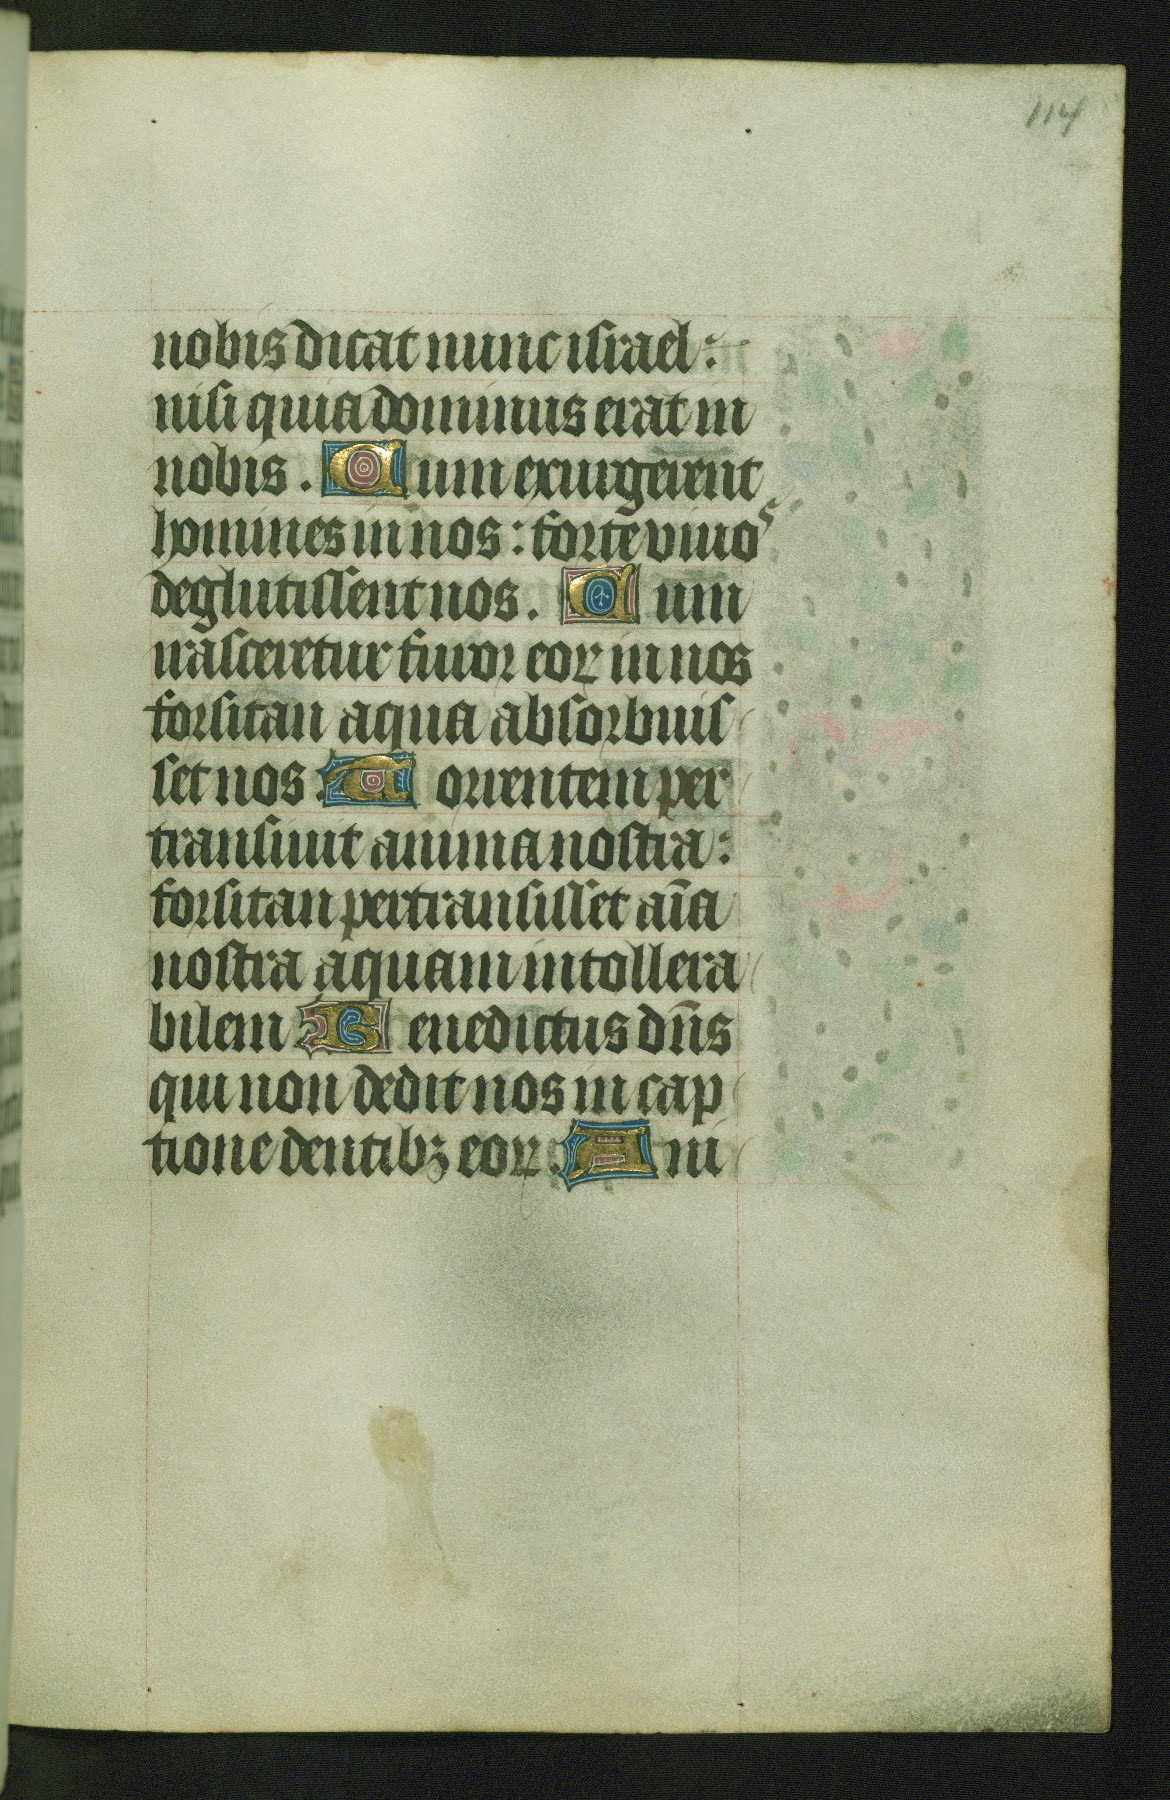 114
nobis dicat nunc israel :
nisi quia dominus erat in
nobis . Cum exurgerent
homines in nos : forte vivos
deglutissent nos . Cum
irasceretur furor eoꝝ in nos
forsitan aqua absorbuis
set nos . Torrentem per
transivit anima nostra :
forsitan pertransisset aīa
nostra aquam intollera
bilem Benedictus dn̄s
qui non dedit nos in cap
tione dentibꝫ eoꝝ . Ani